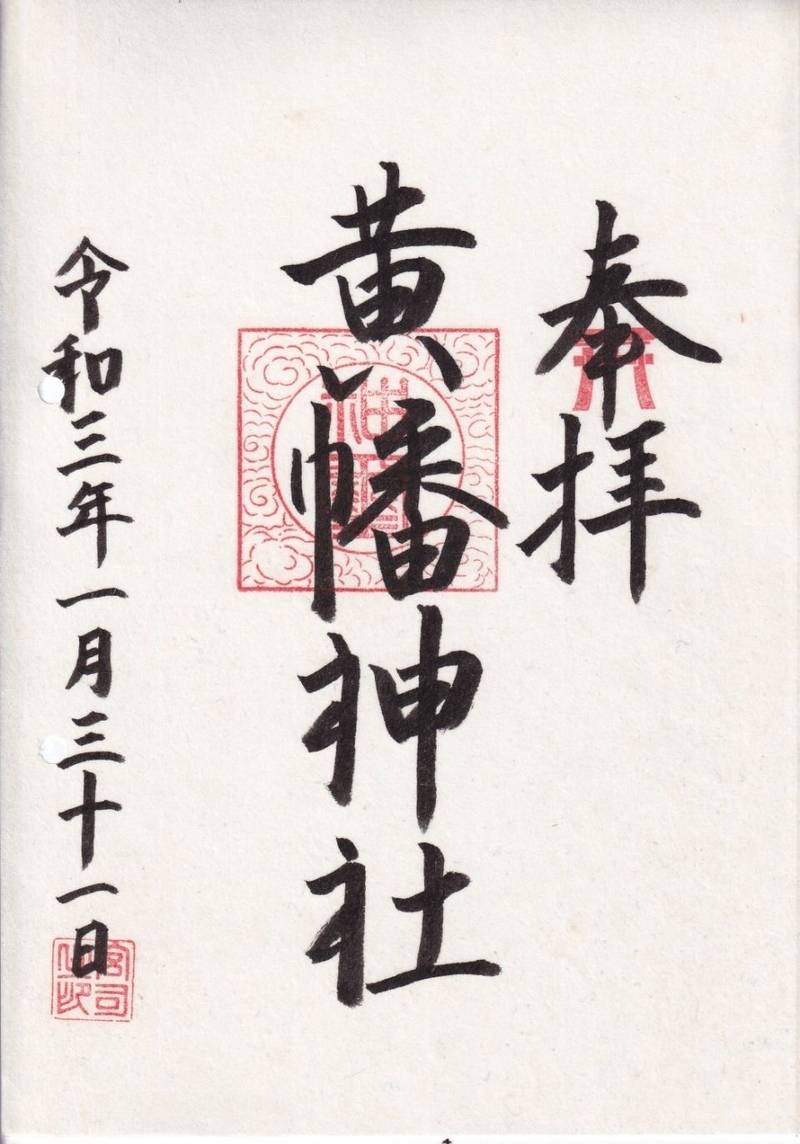 奉拝
黄幡神社
令和三年一月三十一日
宮司之印